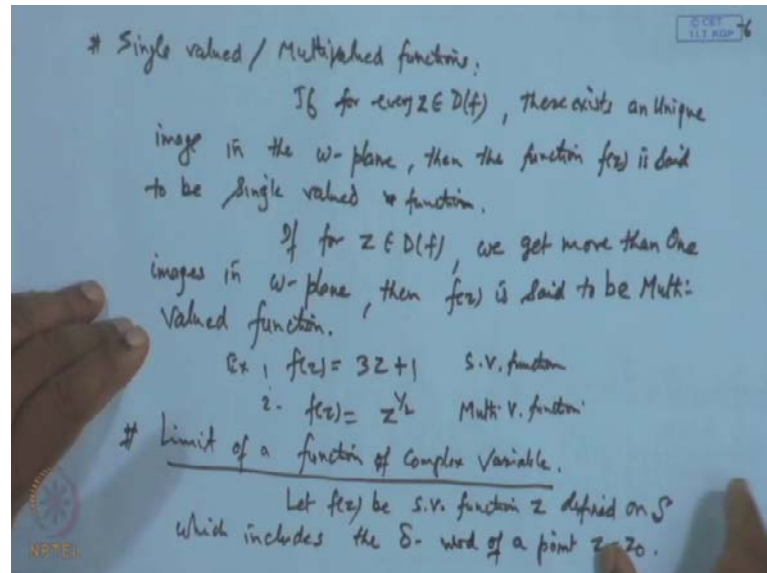 © CET
I.I.T. KGP
6
# Single valued / Multivalued functions:
If for every z ∈ D(f), there exists an Unique
image in the ω-plane, then the function f(z) is said
to be Single valued function.
If for z ∈ D(f), we get more than One
images in ω-plane, then f(z) is said to be Multi-
Valued function.
Ex 1 f(z) = 3z+1 S.V. function
2. f(z) = z^{1/2} Multi V. function
# Limit of a function of Complex Variable.
Let f(z) be S.V. function z defined on S
which includes the δ- nbd of a point z=z₀.
NPTEL